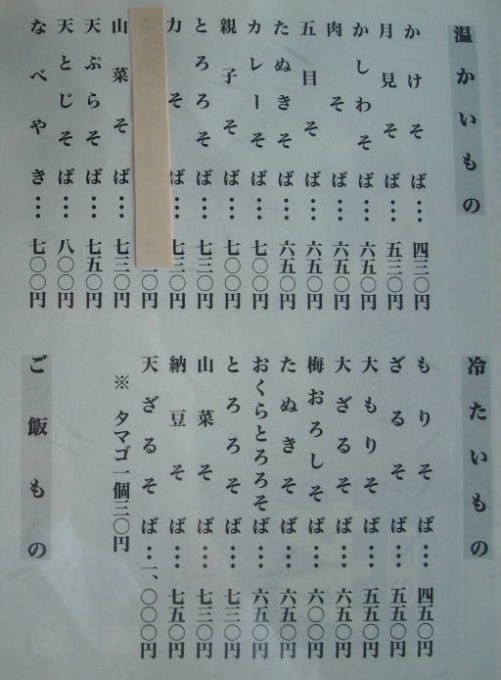 温かいもの
かけそば…四三〇円
月見そば…五三〇円
かしわそば…六五〇円
肉そば…六五〇円
五目そば…六五〇円
たぬきそば…六五〇円
カレーそば…七〇〇円
親子そば…七〇〇円
とろろそば…七三〇円
力そば…七三〇円
〇円
山菜そば…七三〇円
天ぷらそば…七五〇円
天とじそば…八〇〇円
なべやき…七〇〇円
冷たいもの
もりそば…四五〇円
ざるそば…五五〇円
大もりそば…五五〇円
大ざるそば…六五〇円
梅おろしそば…六〇〇円
たぬきそば…六五〇円
おくらとろろそば…六五〇円
とろろそば…七三〇円
山菜そば…七三〇円
納豆そば…七五〇円
天ざるそば…一、〇〇〇円
※ タマゴ一個三〇円
ご飯もの